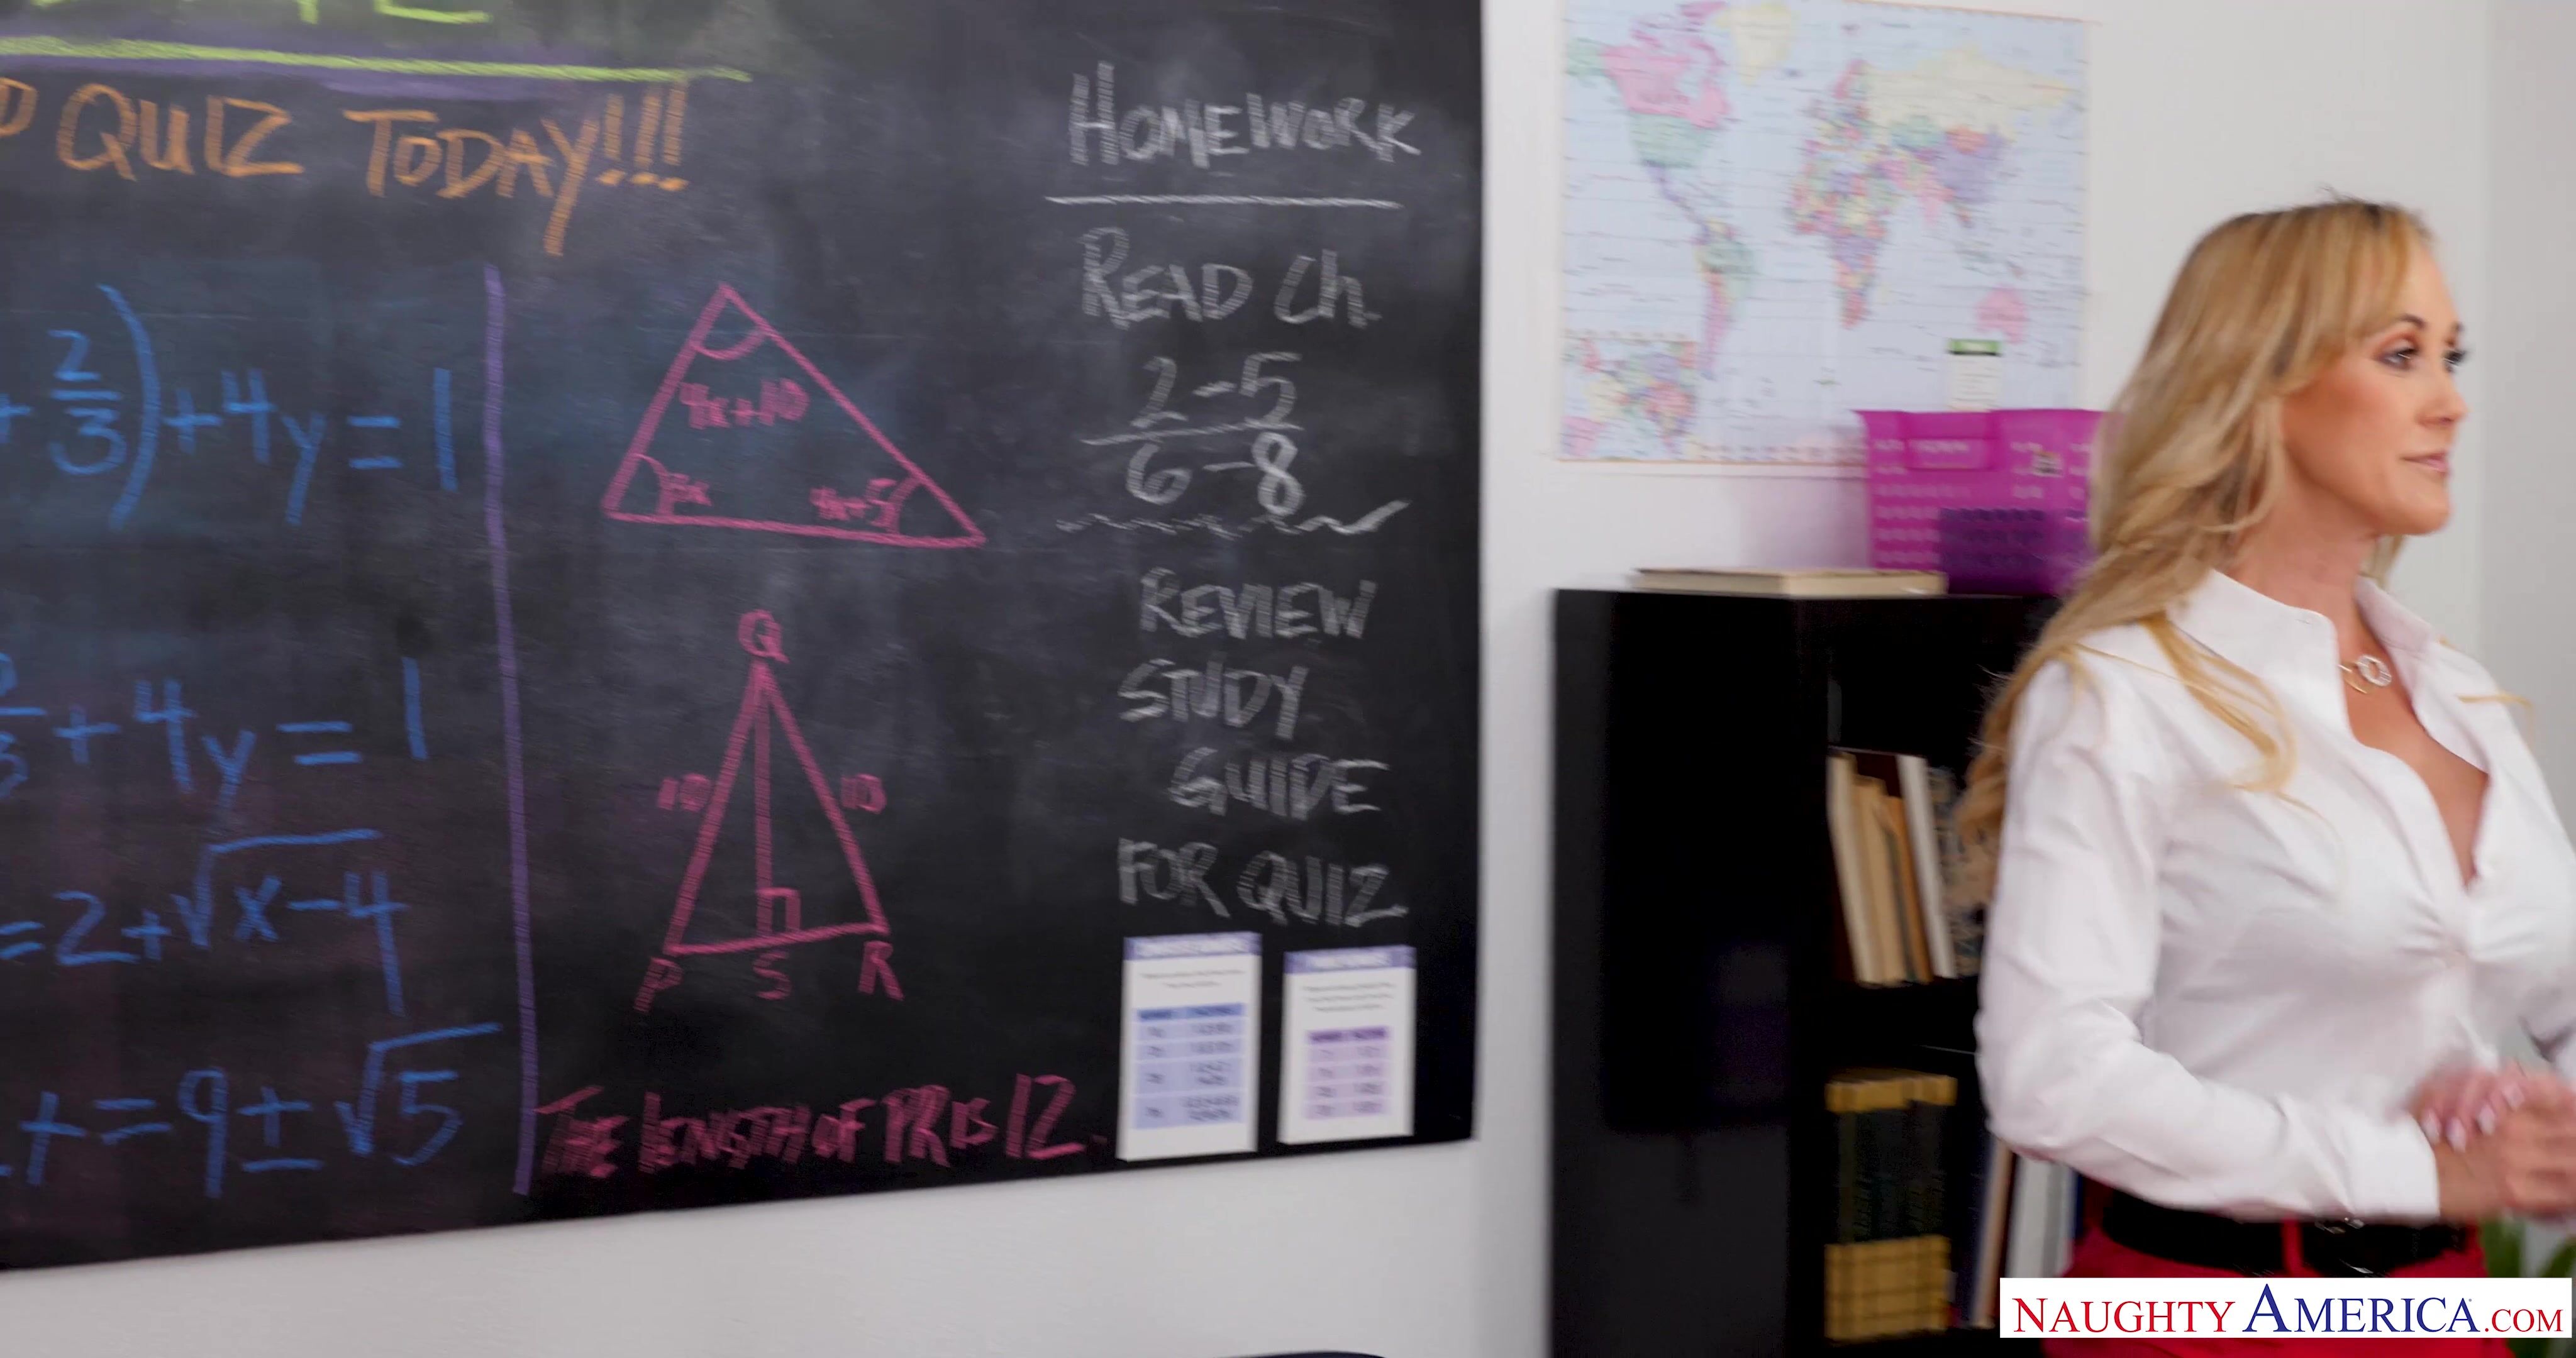 QUIZ TODAY!!!
+ 2/3) + 4y = 1
+ 4y = 1
= 2 + √x-4
= 9 ± √5
4x+10
3x
4x+5
Q
10
10
P
S
R
THE LENGTH OF PR IS 12.
HOMEWORK
READ Ch.
2-5
6-8
REVIEW
STUDY
GUIDE
FOR QUIZ
NAUGHTYAMERICA.COM